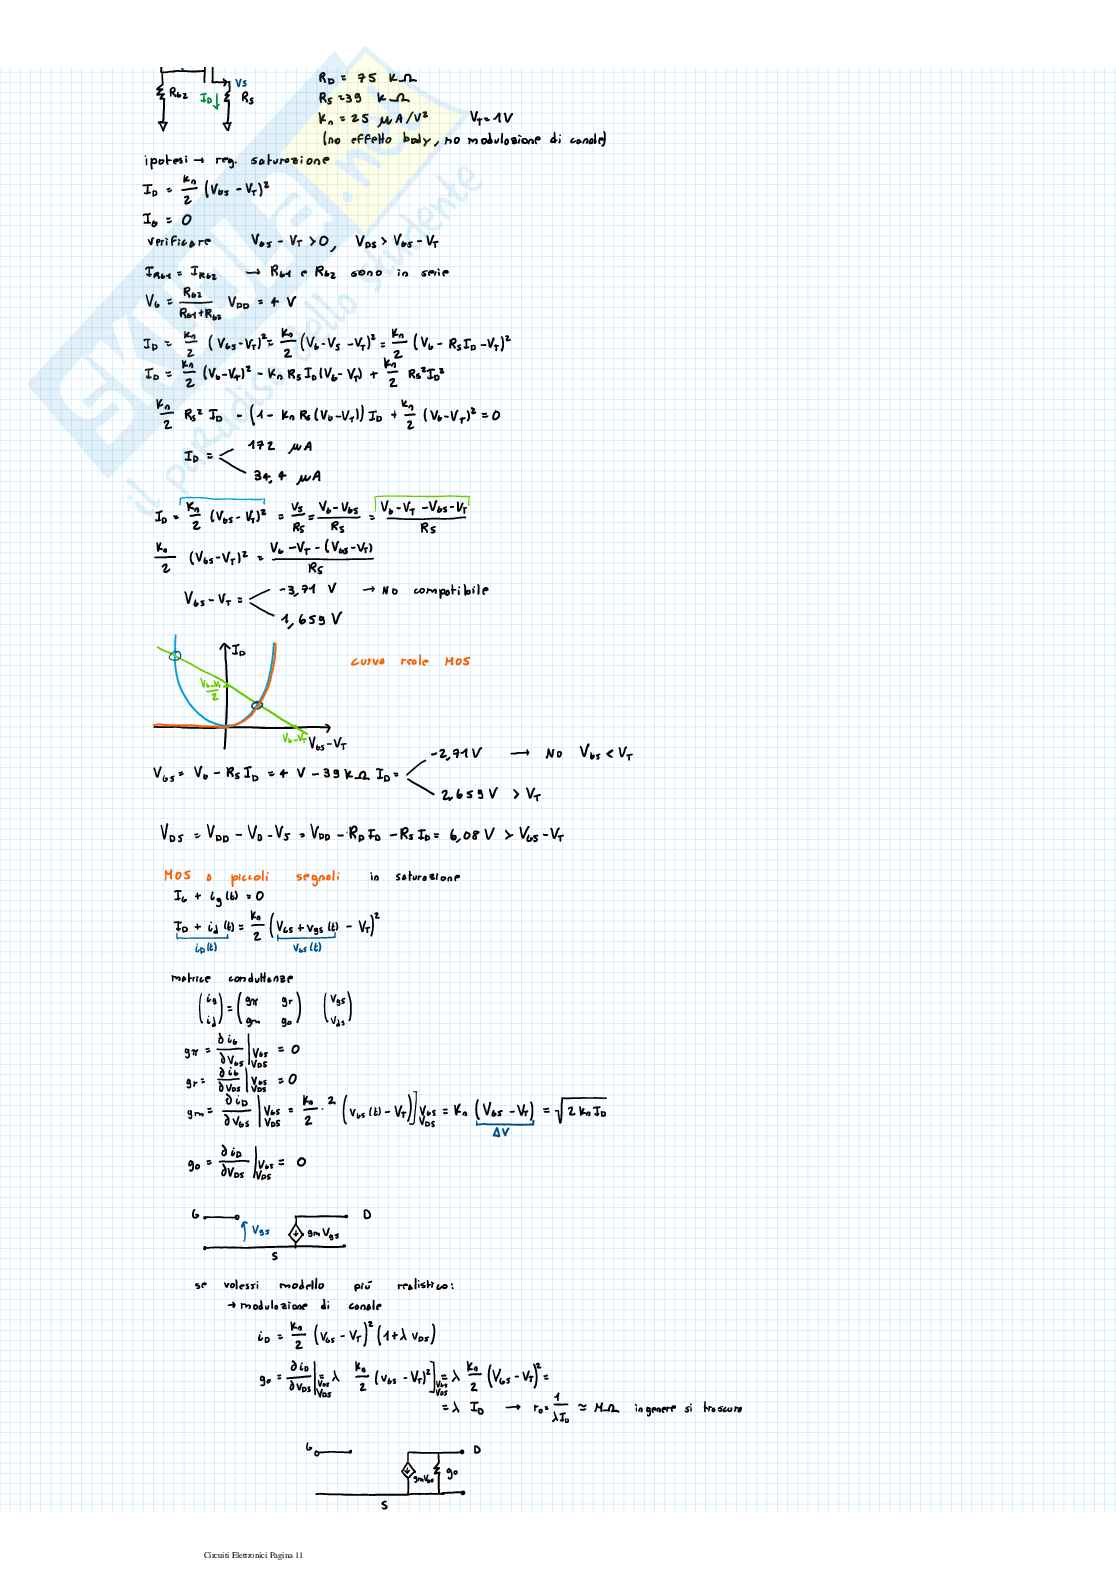 R_b2 I_D ↓ V_S R_S
R_D = 75 KΩ
R_S = 39 KΩ
K_n = 25 μA/V² V_T = 1V
(no effetto body, no modulazione di canale)
ipotesi → reg. saturazione
I_D = K_n/2 (V_GS - V_T)²
I_G = 0
verificare V_GS - V_T > 0, V_DS > V_GS - V_T
I_Rb1 = I_Rb2 → R_b1 e R_b2 sono in serie
V_G = R_b2/(R_b1+R_b2) V_DD = 4 V
I_D = K_n/2 (V_GS-V_T)² = K_n/2 (V_G-V_S-V_T)² = K_n/2 (V_G - R_S I_D - V_T)²
I_D = K_n/2 (V_G-V_T)² - K_n R_S I_D (V_G-V_T) + K_n/2 R_S² I_D²
K_n/2 R_S² I_D - (1 - K_n R_S (V_G-V_T)) I_D + K_n/2 (V_G-V_T)² = 0
I_D = 172 μA
34,4 μA
I_D = K_n/2 (V_GS - V_T)² = V_S/R_S = (V_G - V_GS)/R_S = (V_G - V_T - V_GS - V_T)/R_S
K_n/2 (V_GS-V_T)² = (V_G - V_T - (V_GS-V_T))/R_S
V_GS - V_T = -3,71 V → NO compatibile
1,659 V
I_D
curva reale MOS
(V_G-V_T)/2
V_G-V_T V_GS-V_T
V_GS = V_G - R_S I_D = 4 V - 39 KΩ I_D = -2,71 V → NO V_GS < V_T
2,659 V > V_T
V_DS = V_DD - V_D - V_S = V_DD - R_D I_D - R_S I_D = 6,08 V > V_GS - V_T
MOS a piccoli segnali in saturazione
I_G + i_g(t) = 0
I_D + i_d(t) = K_n/2 (V_GS + v_gs(t) - V_T)²
i_D(t) v_GS(t)
matrice conduttanze
(i_g i_d) = (gπ gr gm go) (v_gs v_ds)
gπ = ∂i_G/∂V_GS |V_GS V_DS = 0
gr = ∂i_G/∂V_DS |V_GS V_DS = 0
gm = ∂i_D/∂V_GS |V_GS V_DS = K_n/2 · 2 (v_GS(t) - V_T)]V_GS V_DS = K_n (V_GS - V_T) = √(2 K_n I_D)
ΔV
go = ∂i_D/∂V_DS |V_GS V_DS = 0
G D
V_gs gm V_gs
S
se volessi modello più realistico:
→ modulazione di canale
i_D = K_n/2 (V_GS - V_T)² (1 + λ v_DS)
go = ∂i_D/∂v_DS |V_GS V_DS = λ K_n/2 (v_GS - V_T)²]V_GS V_DS = λ K_n/2 (V_GS - V_T)² =
= λ I_D → r_o = 1/(λI_D) ≈ MΩ in genere si trascura
G D
gmV_GS go
S
Circuiti Elettronici Pagina 11
SKUOLA.net
il paradiso dello studente